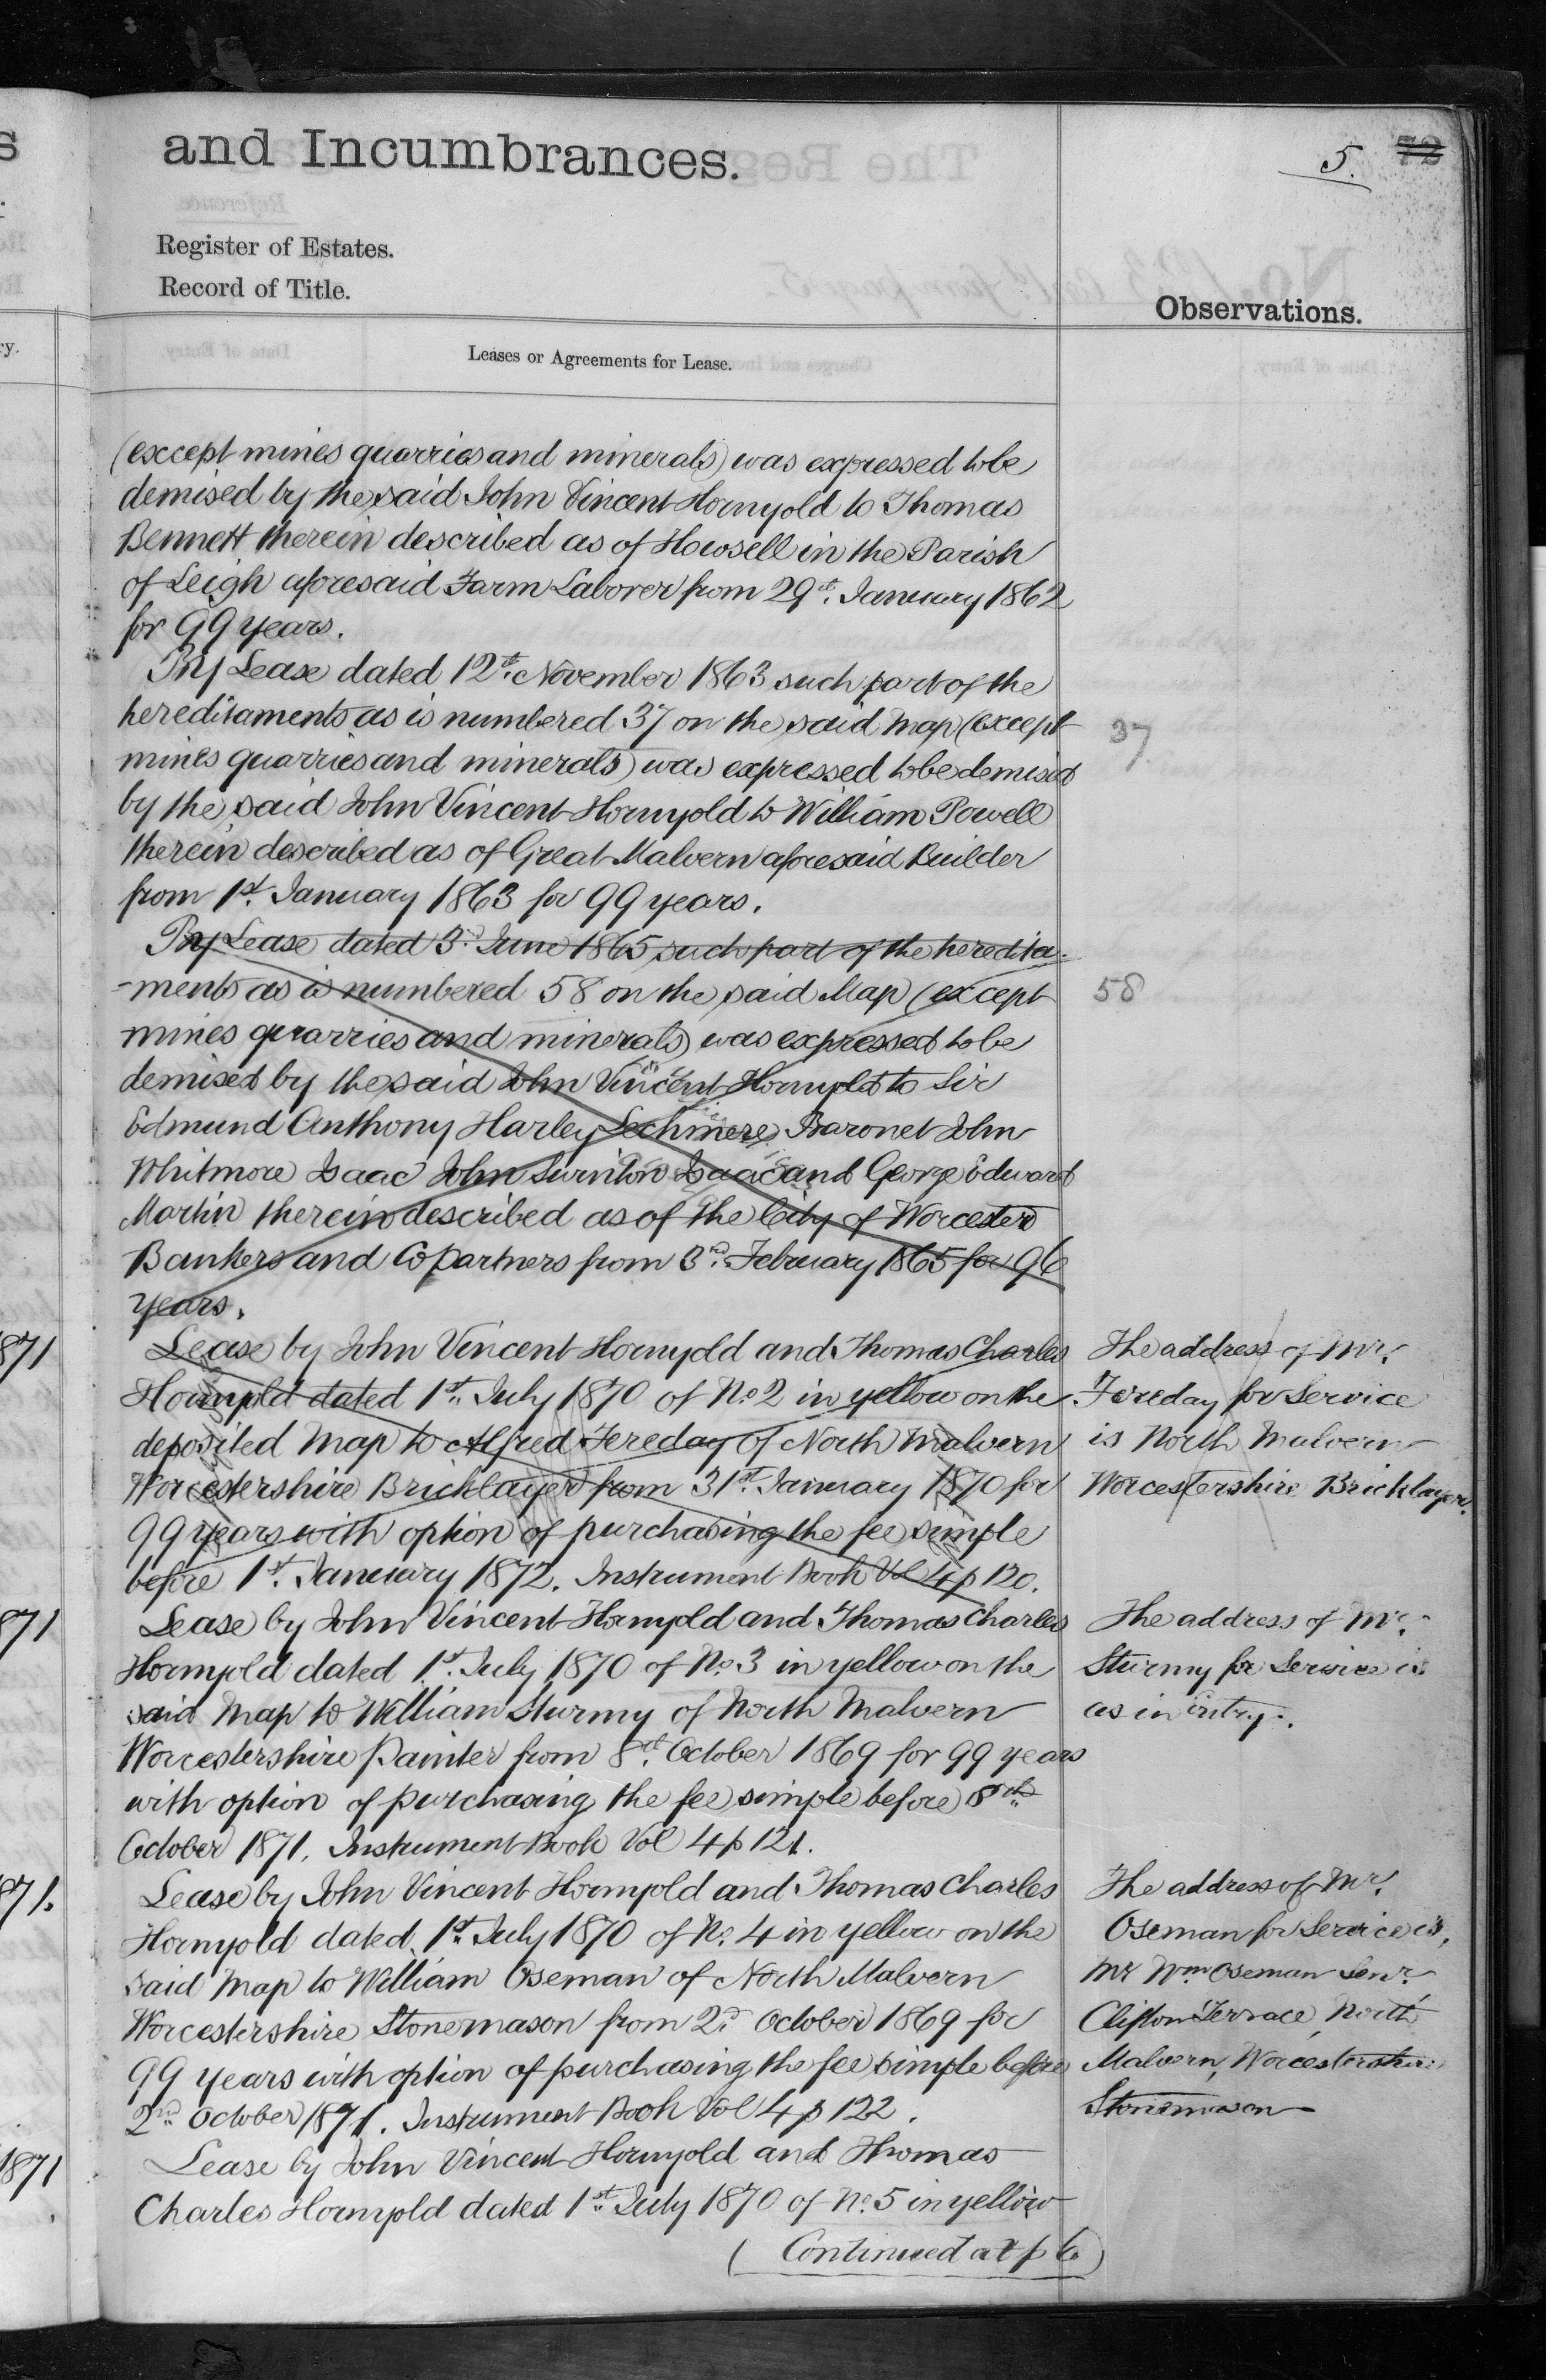 and Incumbrances.
5. 72
Register of Estates.
Record of Title.
Observations.
Leases or Agreements for Lease.
(except mines quarries and minerals) was expressed to be
demised by the said John Vincent Hornyold to Thomas
Bennett therein described as of Howsell in the Parish
of Leigh aforesaid Farm Laborer from 29th. January 1862
for 99 years.
By Lease dated 12th. November 1863 such part of the
hereditaments as is numbered 37 on the said Map (except
37
mines quarries and minerals) was expressed to be demised
by the said John Vincent Hornyold to William Powell
therein described as of Great Malvern aforesaid Builder
from 1st. January 1863 for 99 years.
By Lease dated 3rd. June 1865 such part of the heredita-
-ments as is numbered 58 on the said Map (except
58
mines quarries and minerals) was expressed to be
demised by the said John Vincent Hornyold to Sir
Edmund Anthony Harley Lechmere Baronet John
Whitmore Isaac John Swinton Isaac and George Edward
Martin therein described as of the City of Worcester
Bankers and Copartners from 3rd. February 1865 for 96
years.
1871
Lease by John Vincent Hornyold and Thomas Charles
Hornyold dated 1st. July 1870 of No. 2 in yellow on the
deposited Map to Alfred Fereday of North Malvern
Worcestershire Bricklayer from 31st. January 1870 for
99 years with option of purchasing the fee simple
before 1st. January 1872. Instrument Book Vol 4 p 120.
The address of Mr.
Fereday for Service
is North Malvern
Worcestershire Bricklayer.
871
Lease by John Vincent Hornyold and Thomas Charles
Hornyold dated 1st. July 1870 of No. 3 in yellow on the
said Map to William Sturmy of North Malvern
Worcestershire Painter from 8th. October 1869 for 99 years
with option of purchasing the fee simple before 8th
October 1871. Instrument Book Vol 4 p 121.
The address of Mr.
Sturmy for Service is
as in entry.
871.
Lease by John Vincent Hornyold and Thomas Charles
Hornyold dated 1st. July 1870 of No. 4 in yellow on the
said Map to William Oseman of North Malvern
Worcestershire Stonemason from 2d. October 1869 for
99 years with option of purchasing the fee simple before
2nd. October 1871. Instrument Book Vol 4 p 122.
The address of Mr.
Oseman for Service is,
Mr Wm Oseman Senr.
Clifton Terrace, North
Malvern, Worcestershire
Stonemason
1871
Lease by John Vincent Hornyold and Thomas
Charles Hornyold dated 1st. July 1870 of No. 5 in yellow
(Continued at p 6)